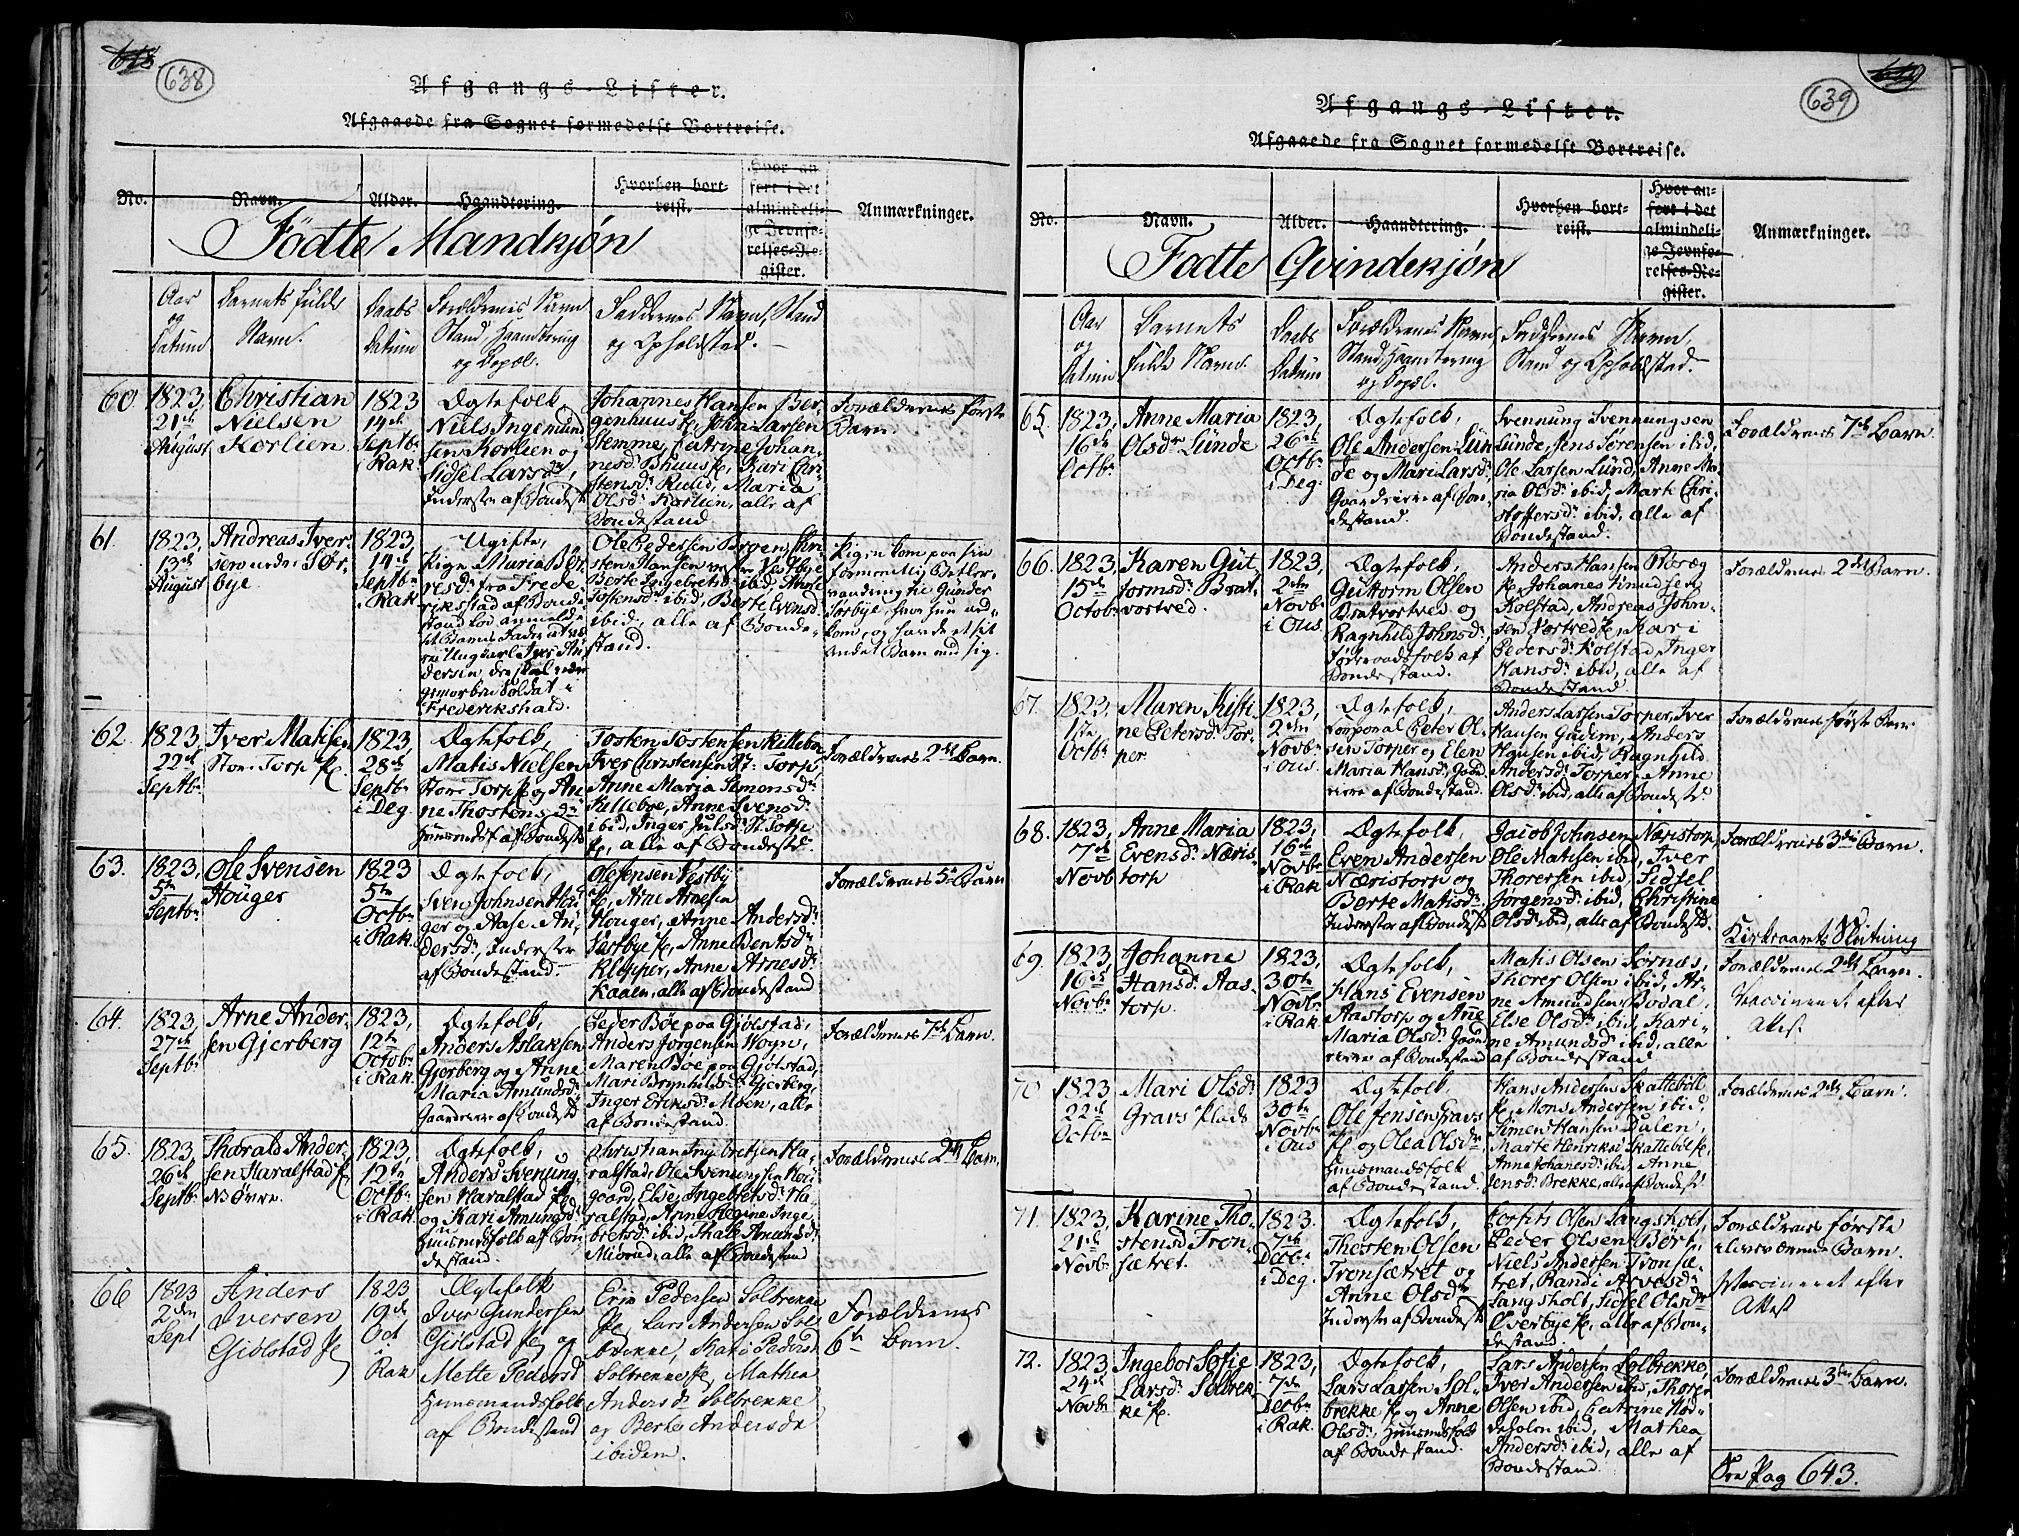 638
Afgangs-Lister.
Afgaaede fra Sognet formedelst Bortreise.
No.
Navn.
Alder.
Haandtering.
Hvorhen bort-
reist.
Hvor an-
ført i det
almindeli-
ge Jevnfø-
relses-Re-
gister.
Anmærkninger.
Födte Mandkjön
Aar
og
Datum
Barnets fulde
Navn.
Daabs
Datum
Forældrenes Navn
Stand, Haandtering
og Bopæl.
Faddernes Navn, Stand
og Opholdsted.
60
1823,
21de
August
Christian
Nielsen
Korlien
1823
14de
Septbr
i Rak
Ægtefolk,
Niels Ingemund
sen Korlien og
Sidsel Larsdr,
Inderster af Bondest
Johannes Hansen Ber-
genhuus Pl, John Larsen
Stemme, Catrine Johan-
nesdr Bhuus Pl, Kari Chri-
stensdr Rulid, Maria
Olsdr Korlien, alle af
Bondestand
Forældrenes første
Barn
61
1823,
13de
August
Andreas Iver
sen nedre Tør
bye
1823,
14de
Septbr
i Rak
Ugifte,
Pige Maria Bør
resdr fra Frede
rikstad af Bonde
stand
Frederikshald.
Ole Pedersen Broen, Chri
sten Hansen vestre Vestbye
Berte Engebretsdr ibid
Tostensdr ibid, Berte Evensdr
ibid, alle af Bonde-
stand.
Pigen kom paa sin
Tørbye, hvor hun ned-
kom, og havde et sit
andet Barn med sig.
62
1823,
22de
Septbr
Iver Matisen
Store Torp Pl.
1823,
28de
Septbr
i Deg
Ægtefolk,
Matis Nielsen
Store Torp Pl og An
ne Thostensdr
Huusmandsf af Bondest
Tosten Tostensen Killebo
Iver Christensen St: Torp,
Anne Maria Simensdr
Killeboe, Anne Svensdr
ibid, Inger Julsdr St: Torp
Pl, alle af Bondestd
Forældrenes 2det Barn.
63.
1823,
5te
Septbr
Ole Svensen
Houger
1823
5te
Octbr
i Rak.
Ægtefolk,
Sven Johnsen Hou
ger og Aase An
dersdr, Inderster
af Bondestand
Ole Jensen Vestby
Pl, Arne Arnesen
Houger, Anne Andersdr
Vestbye Pl, Anne Bentsdr
Klopper, Anne Arnesdr
Kaaen, alle af Bondestand
Forældrenes 5te Barn
64.
1823,
27de
Septbr
Arne Ander-
sen Gjerberg
1823,
12te
Octob
i Rak.
Ægtefolk,
Anders Aslaksen
Gjerberg og Anne
Maria Amundsdr
Gaardeiere af Bondestd
Peder Bøe paa Gjølstad,
Anders Jørgensen Vogn,
Maren Bøe paa Gjølstad,
Mari Brynhildsdr Gjerberg,
Inger Eriksdr Moen, alle
af Bondestand.
Forældrenes 7de Barn.
65.
1823,
26de
Septbr
Tharald Ander-
sen Haralstad Pl
No Øvre.
1823,
12te
Octbr
i Rak
Ægtefolk,
Anders Svenung
sen Haralstad Pl
og Kari Amundsdr
Huusmandsfolk af Bon
destand.
Christian Ingebretsen Ha-
ralstad, Ole Svenungsen Hou
gaard, Else Ingebretsdr Ha-
ralstad, Anne Helene Inge
bretsdr ibid, Thale Amundsdr
Miørud, alle af Bondestand
Forældrenes 2det Barn.
66
1823
2den
Sept
Anders
Iversen
Giölstad Pl
1823
19de
Oct
i
Rak
Ægtefolk
Iver Gundersen
Giölstad Pl og
Mette Pedersd
Huusmandsfolk
af Bondestand
Erik Pedersen Solbrekke
Pl, Lars Andersen Sol
brekke, Kari Pedersd
Solbrekke Pl, Mathea
Andersdr Solbrekke
og Berte Andersdr
ibidem.
Forældrenes
6te Barn.
639
Afgangs-Lister.
Afgaaede fra Sognet formedelst Bortreise.
No.
Navn.
Alder.
Haandtering.
Hvorhen bort-
reist.
Hvor an-
ført i det
almindeli-
ge Jevnfø-
relses-Re-
gister.
Anmærkninger.
Födte Qvindekjön
Aar
og
Datum
Barnets
fulde Navn.
Daabs
Datum
Forældrenes Navn
Stand, Haandtering
og Bopæl.
Faddernes Navn,
Stand og Opholdsted.
65.
1823,
16de
Octbr
Anne Maria
Olsdr Lunde
1823,
26de
Octbr
i Deg.
Ægtefolk,
Ole Andersen Lun
de og Mari Larsdr
Gaardeiere af Bon
destand.
Svennung Svennungsen
Lunde, Jens Sørensen ibid
Ole Larsen Lund, Anne Ma-
ria Olsdr ibid, Mart Chri-
stoffersdr ibid, alle af
Bondestand.
Forældrenes 7de Barn.
66.
1823,
15de
Octobr
Karen Gut
tormsdr Brat
vortred.
1823,
2den
Novbr
i Ous.
Ægtefolk,
Guttorm Olsen
Bratvortved og
Ragnhild Johnsdr,
Føderaadsfolk af
Bondestand.
Anders Hansen Rosæg
Pl, Johanes Knudsen
Kolstad, Andreas John-
sen Vortred Pl, Kari
Pedersdr Kolstad, Inger
Hansdr ibid, alle af
Bondestand
Forældrenes 2det Barn.
67.
1823,
17de
Octbr
Maren Kisti-
ne Petersdr Tor-
per.
1823,
2den
Novbr
i Ous.
Ægtefolk,
Corporal Peter Ol-
sen Torper og Elen
Maria Hansdr, Gaard
eiere af Bondestand.
Anders Larsen Torper, Iver
Hansen Gudim, Anders
Hansen ibid, Ragnhild
Andersdr Torper, Anne
Olsdr ibid, alle af Bondestd
Forældrenes første Barn
68.
1823,
7de
Novb
Anne Maria
Evensdr Næris-
torp
1823,
16de
Novbr
i Rak
Ægtefolk,
Even Andersen
Næristorp og
Berte Matisdr
Inderster af Bondestd
Jacob Johnsen Næristorp,
Ole Matisen ibid, Iver
Thoresen ibid, Sidsel
Jørgensdr ibid, Christine
Olsdr ibid, alle af Bondestd.
Forældrenes 3die Barn.
69.
1823,
16de
Novbr
Johanne
Hansdr Aas-
torp.
1823,
30te
Novbr
i Rak.
Ægtefolk,
Hans Evensen
Aastorp og Ane
Maria Olsdr Gaard
eiere af Bondestand
Matis Olsen Sørnæs,
Thorer Olsen ibid, Ar-
ne Amundsen Bodal,
Else Olsdr ibid, Kari-
ne Amundsdr ibid, alle
af Bondestand.
Forældrenes 2det Barn.
Vaccineret efter
Attest.
70
1823
22de
Octbr
Mari Olsdr
Gravs Plads
1823
30te
Novbr
i Ous
Ægtefolk,
Ole Jensen Gravs
Pl og Olea Olsdr
Huusmandsfolk
af Bondestand.
Hans Andersen Skattebøll
Pl, Mons Andersen ibid,
Simen Hansen Dalen,
Marte Henriksdr Skattebøl Pl,
Anne Johanesdr ibid, Anne
Jensdr Brekke, alle af Bondestd
Forældrenes 2det Barn.
71.
1823,
21de
Novbr
Karine Tho-
stensdr Tron-
sætret.
1823.
7de
Decbr
i Deg.
Ægtefolk,
Thosten Olsen
Tronsætret og
Anne Olsdr
Inderster af Bondestd
Olsen Langsholt,
Peder Olsen Børt,
Niels Andersen Tronsæ-
tret, Randi Arvesdr
Langsholt, Sidsel Olsdr
Overbye Pl, alle af Bon-
destand.
Forældrenes første
Barn.
Vaccineret efter
Attest
72.
1823
24de
Novbr
Ingebor Sofie
Larsdr Solbrek-
ke Pl.
1823,
7de
Decbr
i Rak.
Ægtefolk,
Lars Larsen Sol-
brekke Pl og Anne
Olsdr, Huusmandsfolk
af Bondestand.
Lars Andersen Solbrekke,
Iver Andersen ibid, Thorer
Olsen ibid, Catrine
ibid, Mathea
Andersdr ibid, alle af
Bondestand.
Forældrenes 3die Barn.
Pag 643.